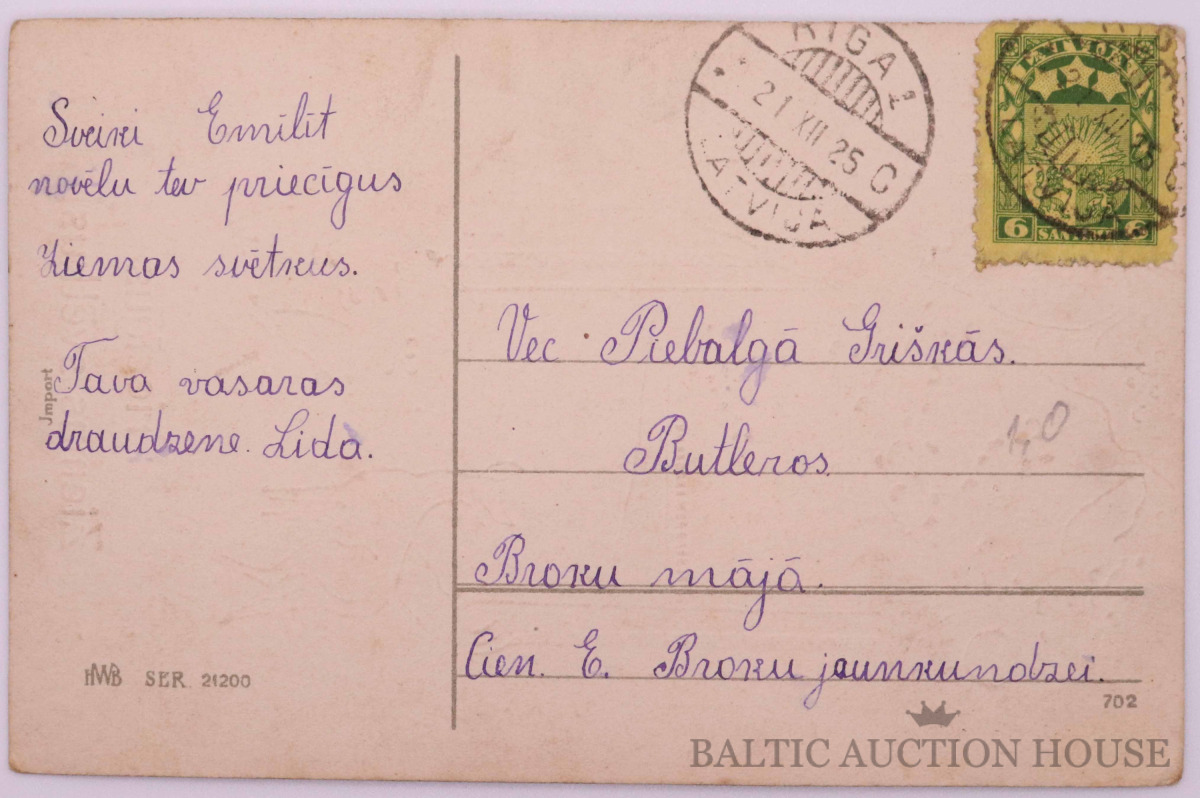 Sveiki Emilīt
novēlu tev priecīgus
Ziemas svētkus.
Tava vasaras
draudzene. Lida.
Jmport
HWB SER. 21200
RIGA 1
21 XII 25 C
LATVIJA
LATVIJA
6 SANTIMI 6
Vec Piebalgā Griškās.
Butleros
Broku mājā.
Cien. E. Broku jaunkundzei.
702
BALTIC AUCTION HOUSE